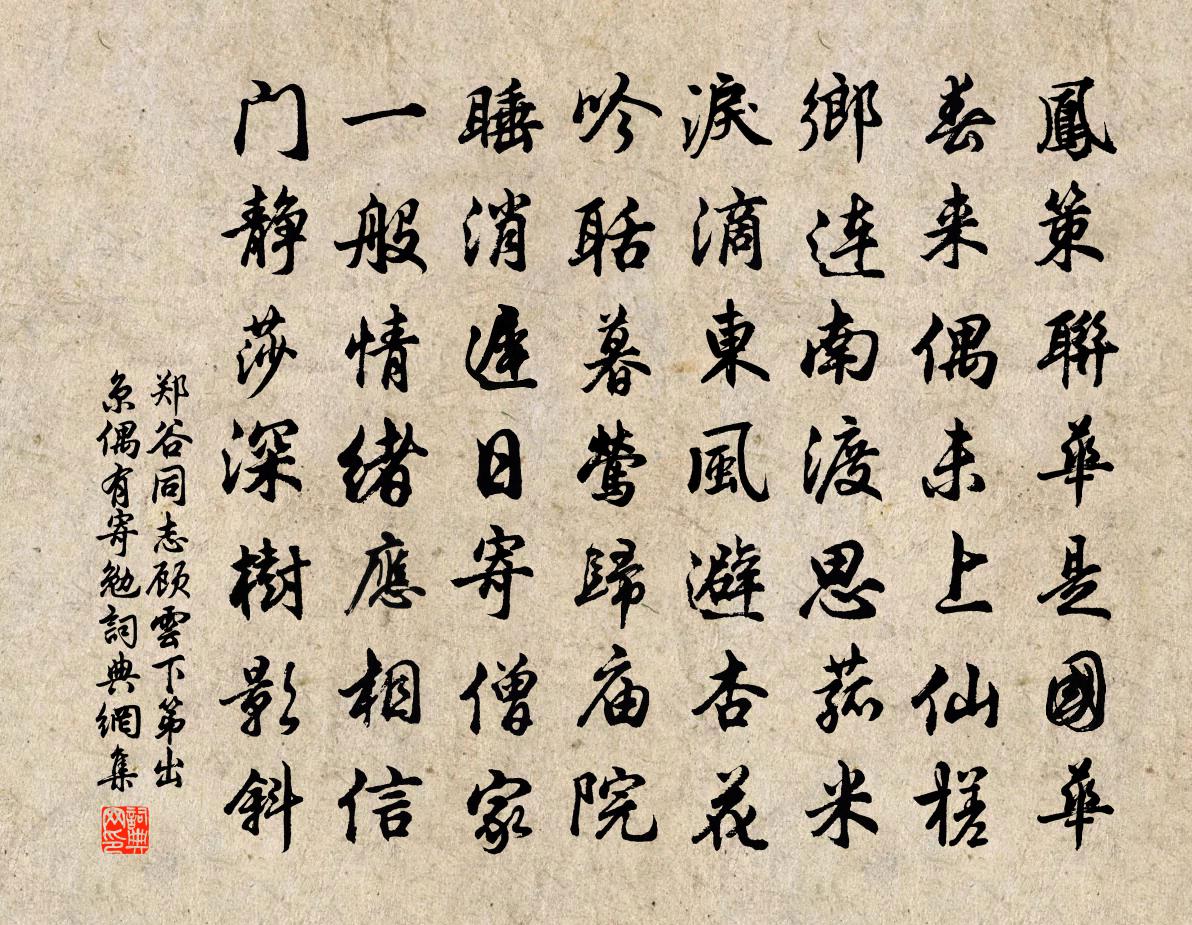 鳳策聯華是國華
春来偶未上仙槎
鄉連南渡思菰米
淚滴東風避杏花
吟聒暮鶯歸庙院
睡消遲日寄僧家
一般情緒應相信
门静莎深樹影斜
郑谷同志顾雲下第出
京偶有寄勉詞典網集
詞典网印